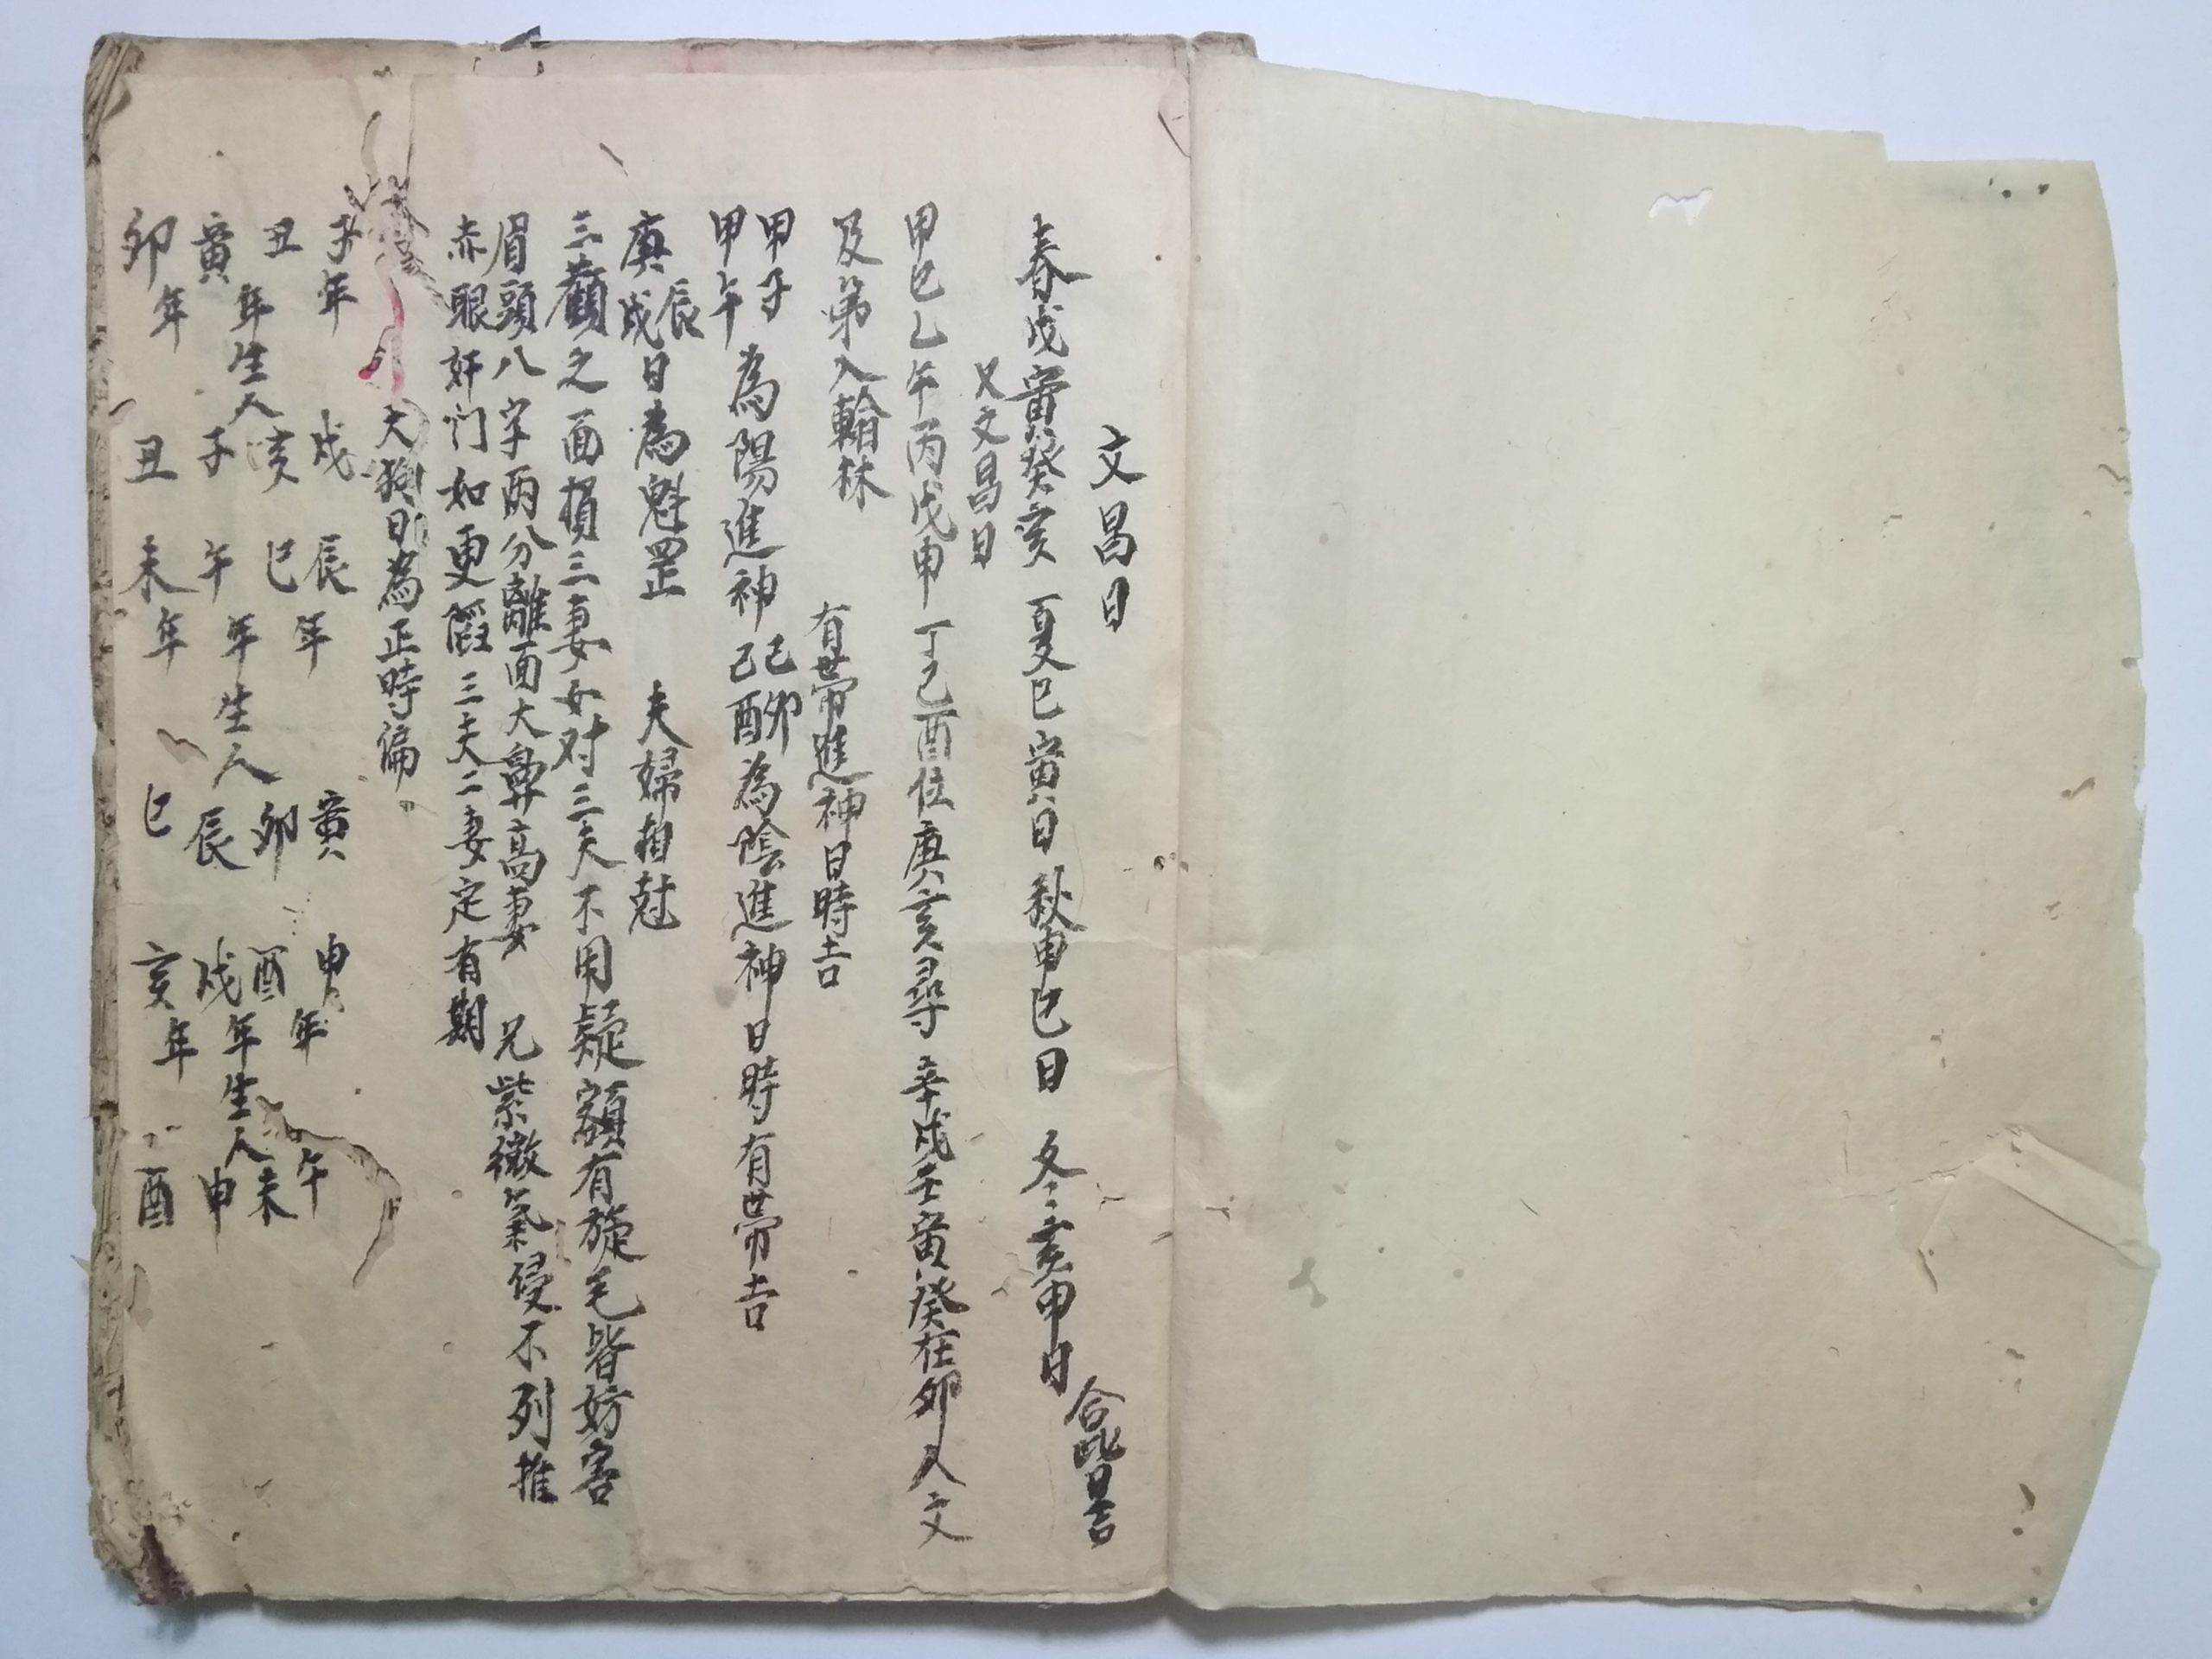 文昌日
春戊寅癸亥 夏巳寅日 秋申巳日 冬亥申日 合此日吉
又文昌日
甲巳乙午丙戊申 丁己酉位庚亥尋 辛戌壬寅癸在卯 人文
及第入翰林
有帶進神日時吉
甲子
甲午 為陽進神 己卯
己酉 為陰進神日時有帶吉
庚辰
戌日為魁罡 夫婦相尅
三顴之面損三妻 女对三夫不用疑 額有旋毛皆妨害
眉頭八字兩分離 面大鼻高妻 兄 紫微氣侵不列推
赤眼奸门如更 三夫二妻定有期
天狗日為正時偏
子年 戌 辰年 寅 申年 午
丑年生人 亥 巳 卯 酉 未
寅 子 午年生人 辰 戌年生人 申
卯年 丑 未年 巳 亥年 酉